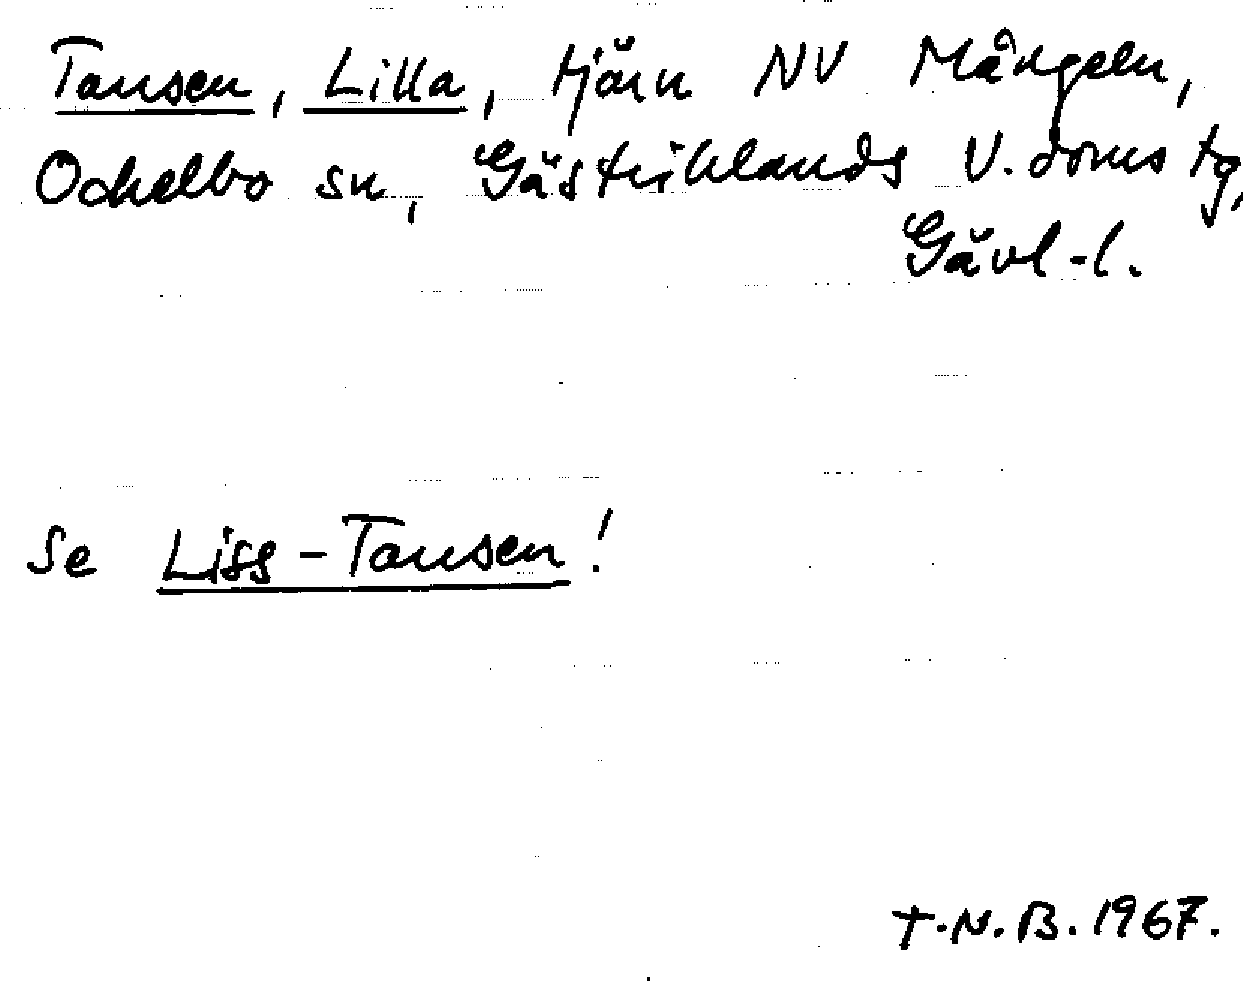 Tansen, Lilla, tjärn NV Mången,
Ockelbo sn, Gästriklands V. doms tg,
Gävl-l.
Se Liss-Tansen!
T.N.B. 1967.